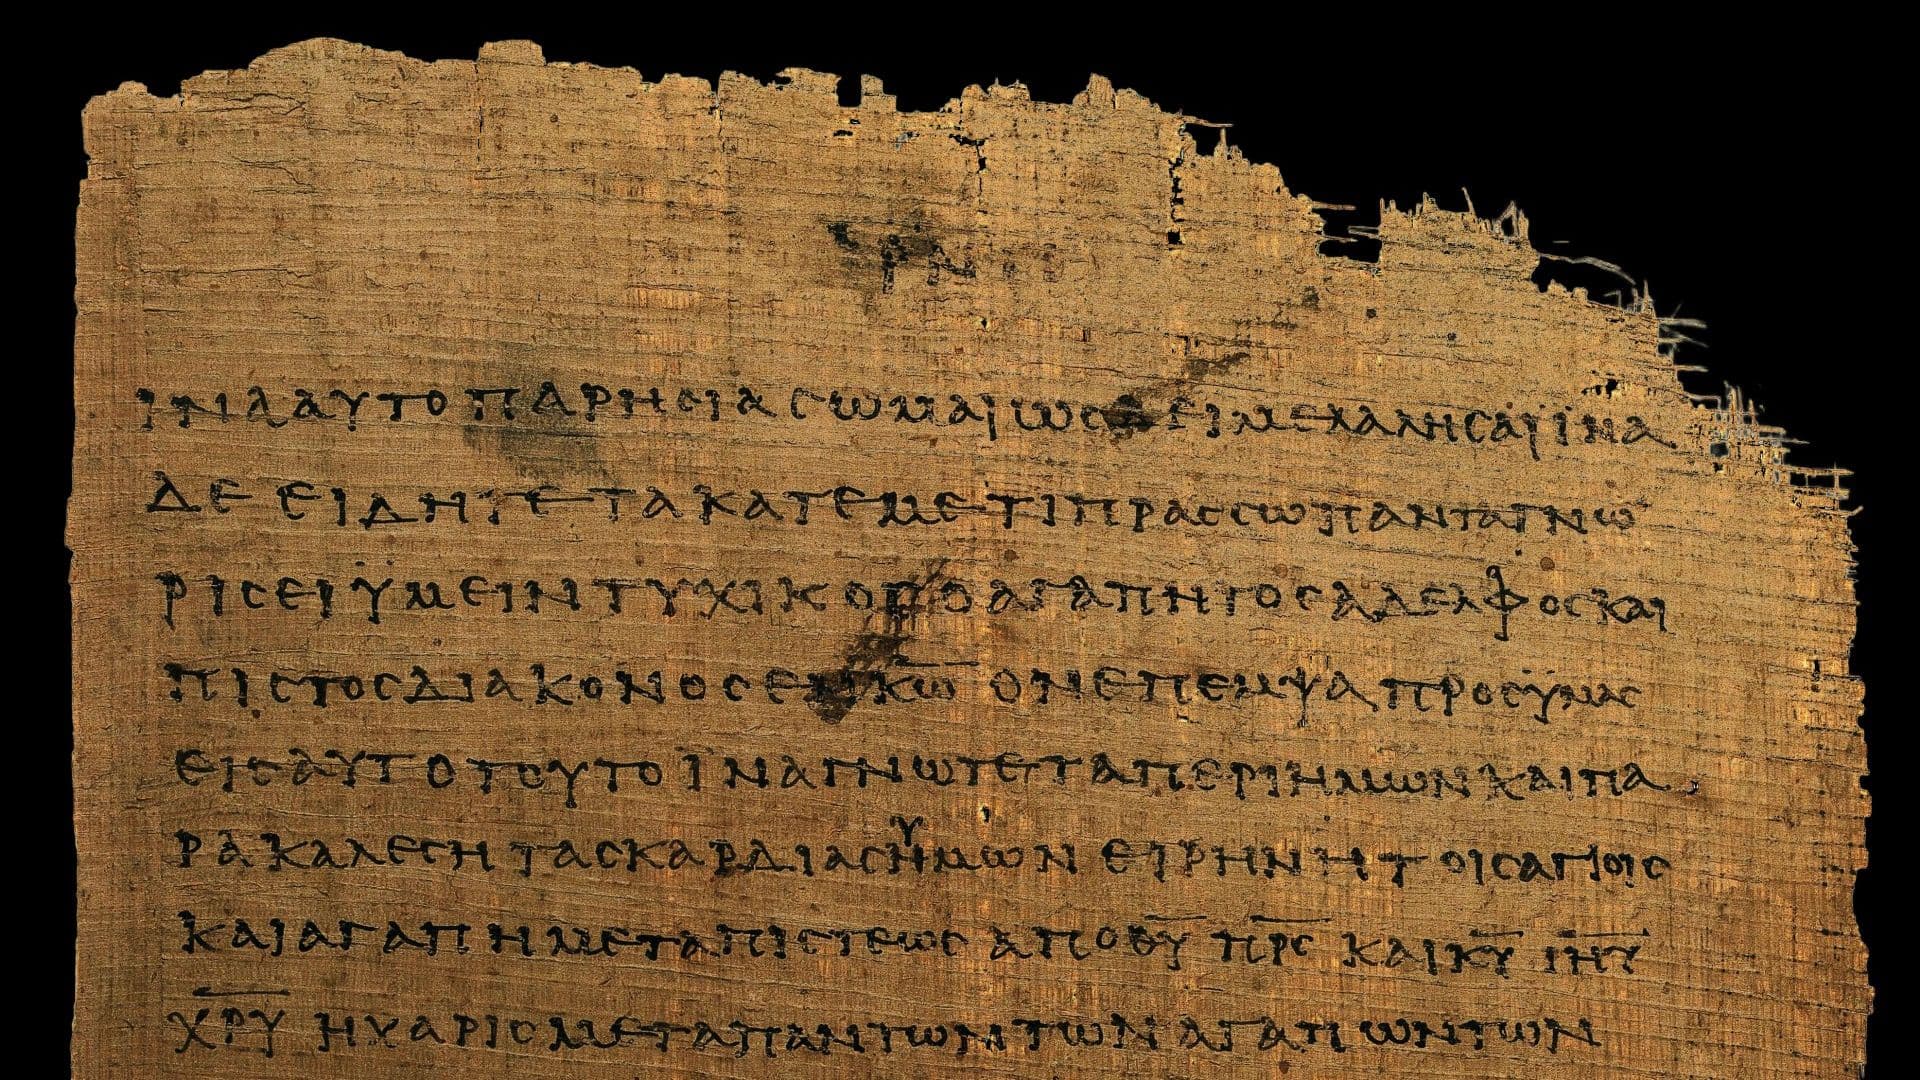 ΡΝ
ΙΝΑΑΥΤΟΠΑΡΗCΙΑCΩΜΑΙΩCΔΕΙΜΕΛΑΛΗCΑΙΪΝΑ
ΔΕΕΙΔΗΤΕΤΑΚΑΤΕΜΕΤΙΠΡΑCCΩΠΑΝΤΑΓΝΩ
ΡΙCΕΙΫΜΕΙΝΤΥΧΙΚΟCΟΑΓΑΠΗΤΟCΑΔΕΛΦΟCΚΑΙ
ΠΙCΤΟCΔΙΑΚΟΝΟCΕΝΚ̅Ω̅ ΟΝΕΠΕΜΨΑΠΡΟCΫΜΑC
ΕΙCΑΥΤΟΤΟΥΤΟΪΝΑΓΝΩΤΕΤΑΠΕΡΙΗΜΩΝΚΑΙΠΑ
ΡΑΚΑΛΕCΗΤΑCΚΑΡΔΙΑCΥΗΜΩΝ ΕΙΡΗΝΗΤΟΙCΑΓΙΟΙC
ΚΑΙΑΓΑΠΗΜΕΤΑΠΙCΤΕΩC ΑΠΟΘ̅Υ̅ Π̅Ρ̅C̅ ΚΑΙΚ̅Υ̅ Ι̅Η̅Υ̅
Χ̅Ρ̅Υ̅ ΗΧΑΡΙCΜΕΤΑΠΑΝΤΩΝΤΩΝΑΓΑΠΩΝΤΩΝ